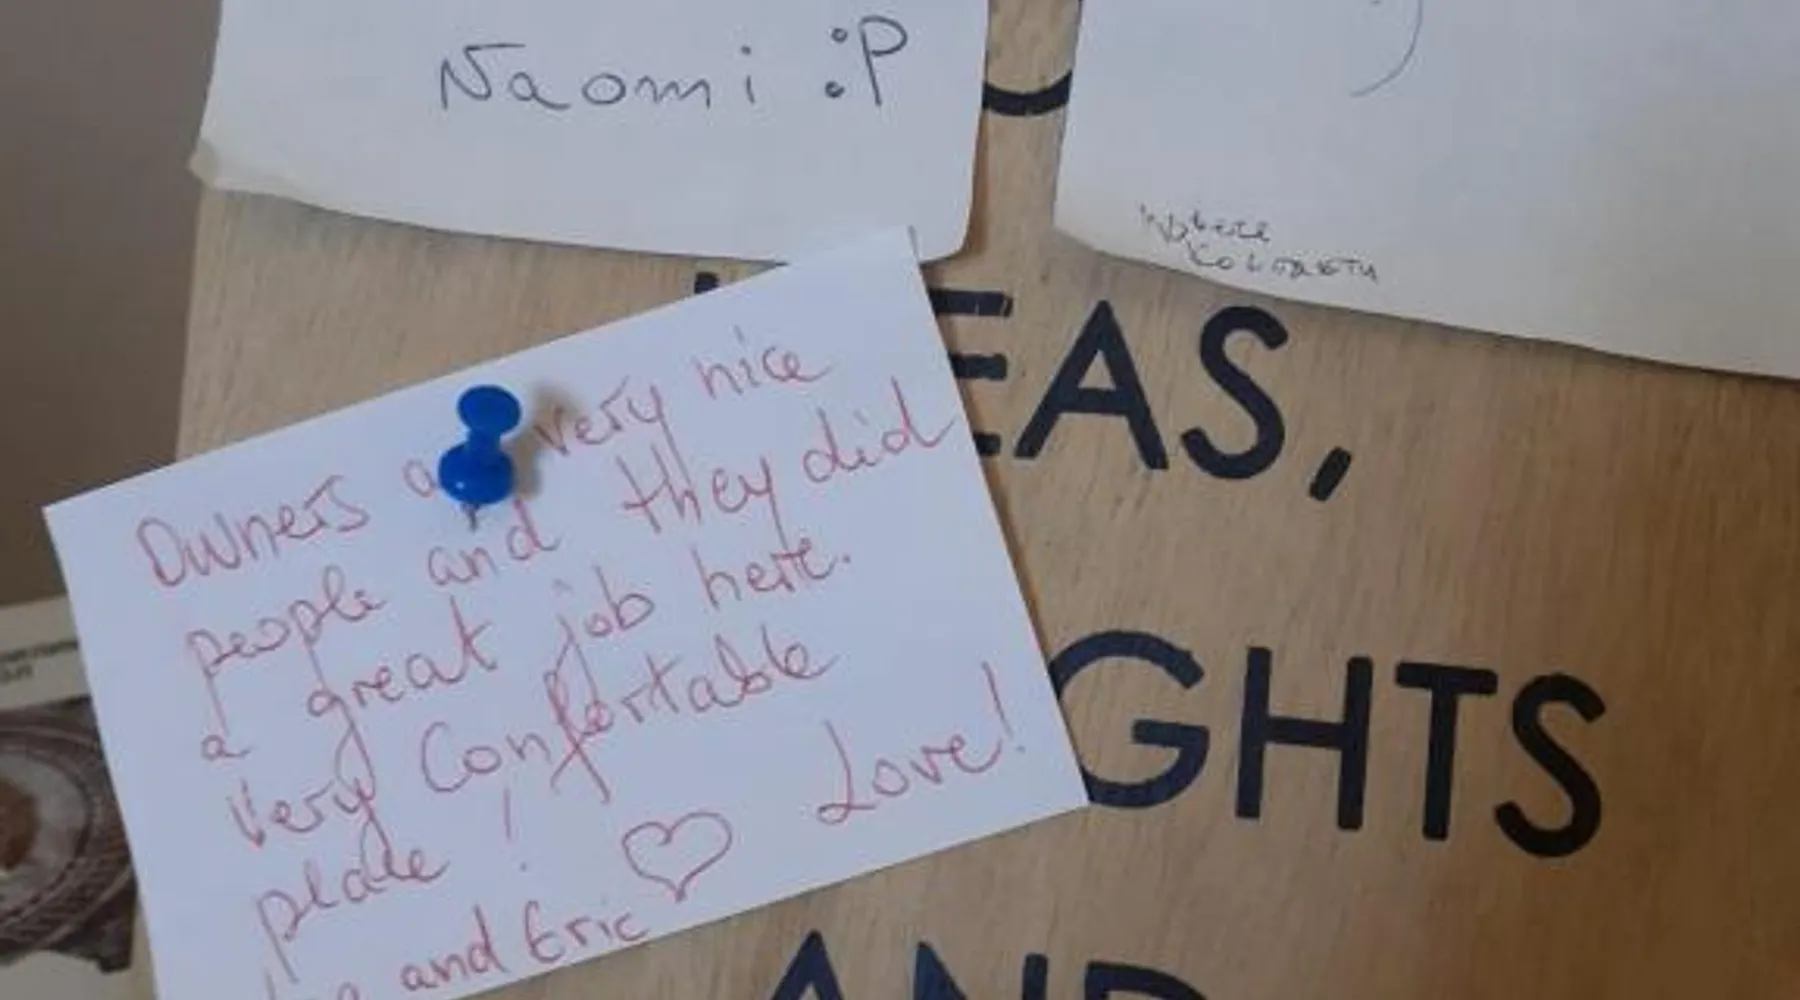 Naomi :P
EAS,
Owners a very nice
people and they did
a great job here.
very Confortable
place! Love!
and Eric
GHTS
AND